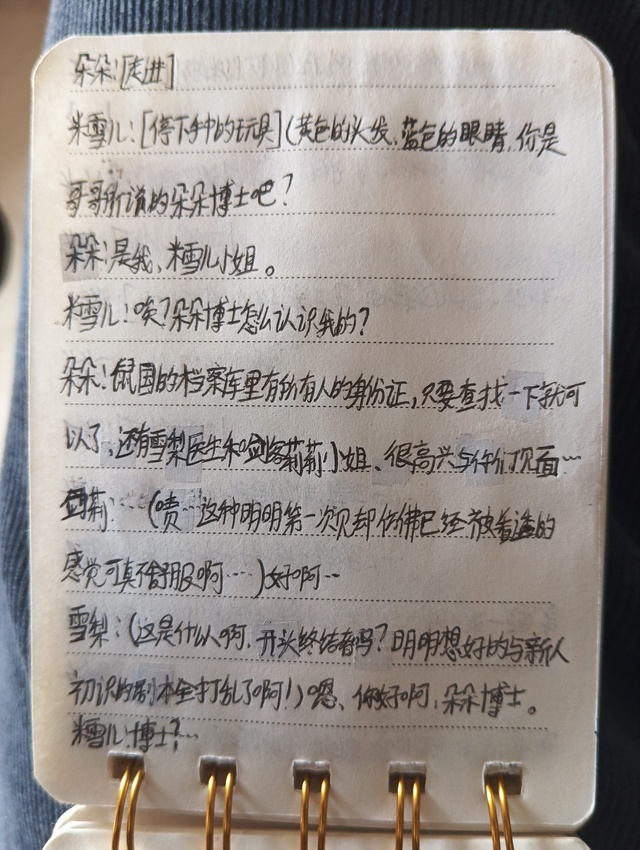 朵朵:[走进]
米雪儿:[停下手中的玩具](黄色的头发、蓝色的眼睛,你是
哥哥所说的朵朵博士吧?
朵朵:是我、米雪儿小姐。
米雪儿:唉?朵朵博士怎么认识我的?
朵朵:鼠国的档案库里有所有人的身份证,只要查找一下就可
以了、还有雪梨医生和剑客莉莉小姐、很高兴与你们见面…
莉:…(啧…这种明明第一次见却仿佛已经被看透的
感觉可真不舒服啊…)好啊…
雪梨:(这是什么啊,开头终结者吗?明明想好的与新人
初识的剧本全打乱了啊!)嗯、你好啊,朵朵博士。
米雪儿:博士?…